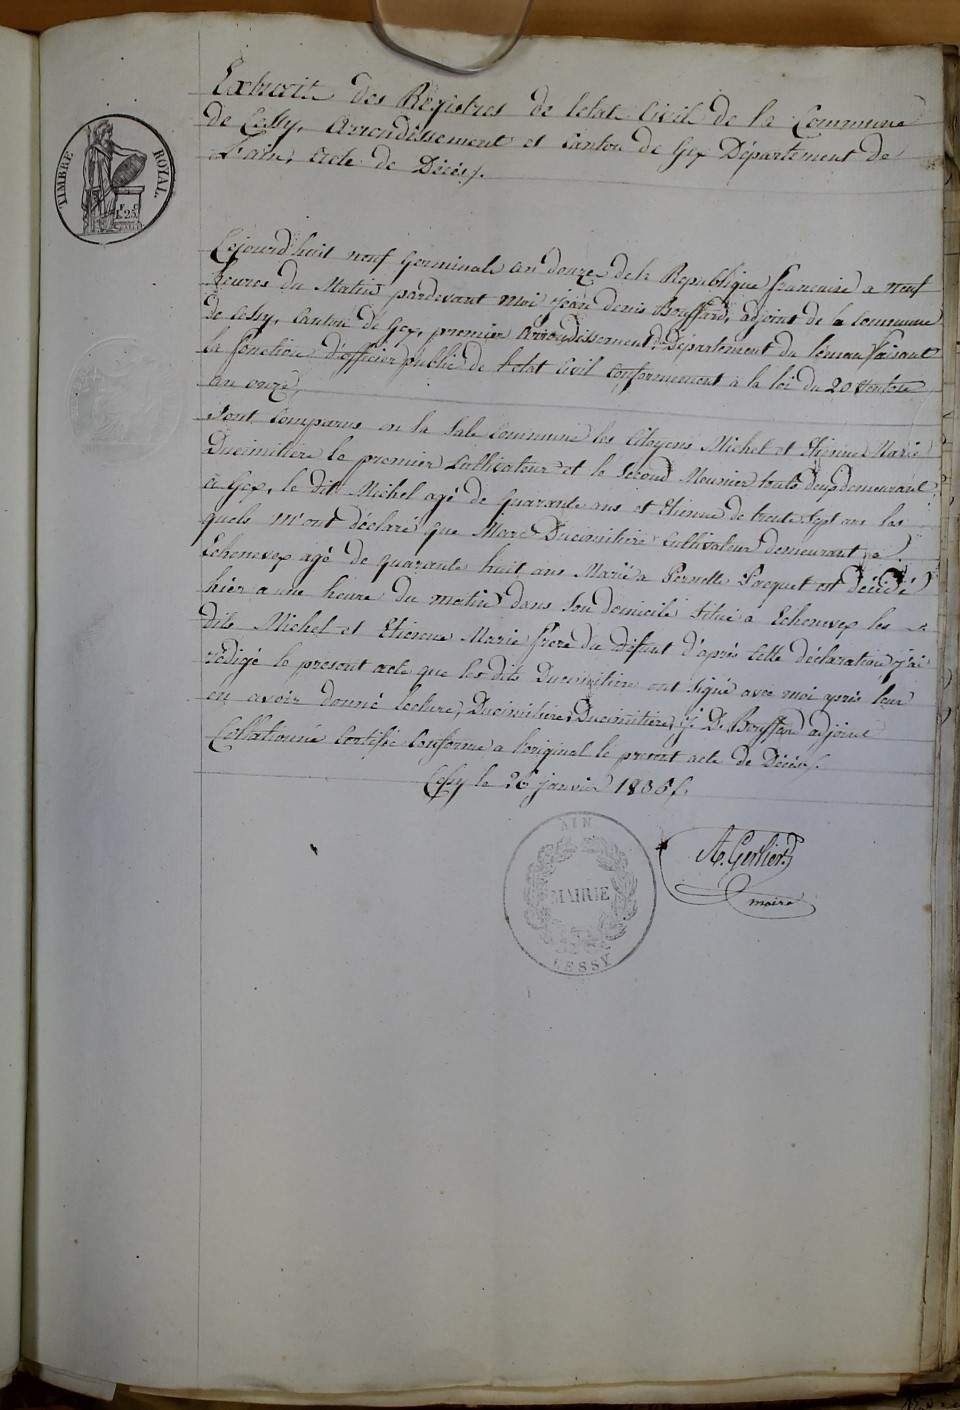 Extrait des Régistres de letat Civil de la Commune
de Cessy, Arrondissement et Canton de Gex Département de
l'ain, acte de Décès.
TIMBRE ROYAL.
1F 25C
Cejourd'huit neuf Germinale an douze de la République française a neuf
heures du Matin pardevant moi jean denis Bouffard, adjoint de la Commune
de Cessy, Canton de Gex, premier Arrondissement, Département du leman faisant
la fonction d'officier public de l'etat Civil conformement à la loi du 20 Ventose
an onze,
Sont Comparus en la Sale Commune les Citoyens Michel et Etienne Marie
Ducimitiere le premier Cultivateur et le Second Meunier touts deux demeurant
à Gex, le dit Michel agé de quarante ans et Etienne de trente Sept ans les
quels m'ont déclaré que Marc Ducimitiere Cultivateur demeurant a
Echenevex agé de quarante huit ans Marié a Pernette Pacquet est décédé
hier a une heure du matin dans Son domicile situé a Echenevex les
dits Michel et Etienne Marie frere du défunt d'après Cette déclaration j'ai
rédigé le present acte que les dits Ducimitiere ont signé avec moi après leur
en avoir donné lecture, Ducimitiere, Ducimitiere, j. D. Bouffard adjoint
Collationné Certifié Conforme a l'original le present acte de Décès.
Cessy le 26 janvier 1836.
A. Gerlier
maire
AIN
MAIRIE
CESSY